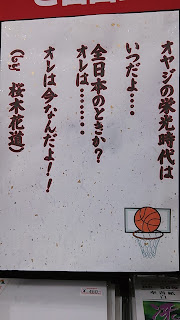 オヤジの栄光時代は
いつだよ…
全日本のときか?
オレは………
オレは今なんだよ!!
(by 桜木花道)